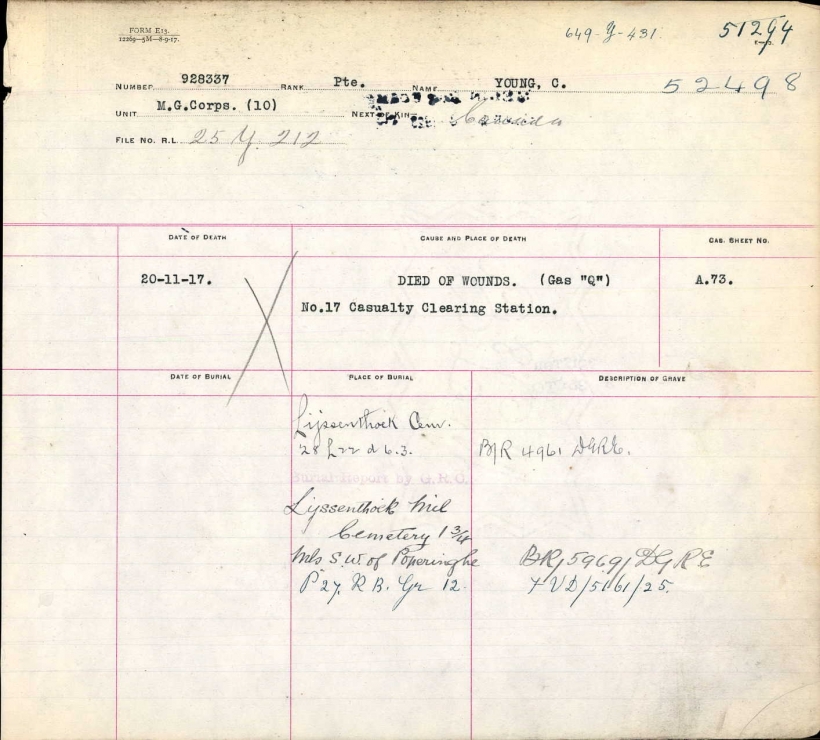 FORM E13.
12269—5M—8-9-17.
649-Y-431.
51294
NUMBER 928337 RANK Pte. NAME YOUNG, C.
52498
UNIT M.G.Corps. (10) NEXT OF KIN Canada
FILE NO. R.L. 25 Y. 212
DATE OF DEATH CAUSE AND PLACE OF DEATH CAS. SHEET NO.
20-11-17. DIED OF WOUNDS. (Gas "Q") A.73.
No.17 Casualty Clearing Station.
DATE OF BURIAL PLACE OF BURIAL DESCRIPTION OF GRAVE
Lijssenthoek Cem.
28 L22 d 6.3. B/R 4961 DGRE.
Burial Report by G.R.O.
Lijssenthoek Mil
Cemetery 1 3/4
Mls S.W. of Poperinghe BR/5969/DGRE
P 27. R B. Gr 12. + VD/5161/25.